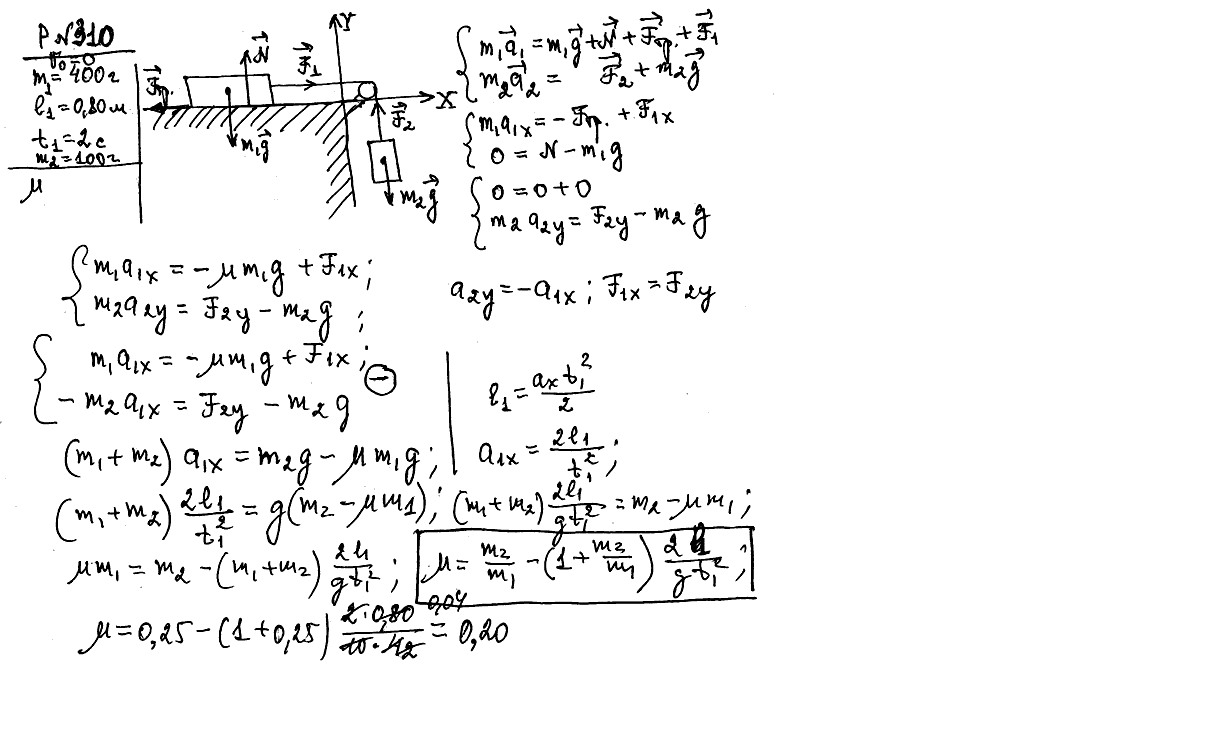 P N310
v₀=0
m₁=400г
l₁=0,80м
t₁=2с
m₂=100г
μ
Y
X
N⃗
F⃗₁
F⃗тр.
m₁g⃗
F⃗₂
m₂g⃗
m₁a⃗₁ = m₁g⃗ + N⃗ + F⃗тр. + F⃗₁
m₂a⃗₂ = F⃗₂ + m₂g⃗
m₁a₁ₓ = - Fтр. + F₁ₓ
0 = N - m₁g
0 = 0 + 0
m₂a₂y = F₂y - m₂g
m₁a₁ₓ = - μm₁g + F₁ₓ;
m₂a₂y = F₂y - m₂g ;
a₂y = -a₁ₓ ; F₁ₓ = F₂y
m₁a₁ₓ = - μm₁g + F₁ₓ;
- m₂a₁ₓ = F₂y - m₂g
⊖
l₁ = aₓt₁²/2
a₁ₓ = 2l₁/t₁²;
(m₁+m₂) a₁ₓ = m₂g - μm₁g;
(m₁+m₂) 2l₁/t₁² = g(m₂ - μm1); (m₁+m₂) 2l₁/gt₁² = m₂ - μm₁;
μm₁ = m₂ - (m₁+m₂) 2l₁/gt₁²; μ = m₂/m₁ - (1 + m₂/m₁) 2l₁/gt₁²;
μ = 0,25 - (1 + 0,25) 2·0,80/10·42 0,04 = 0,20